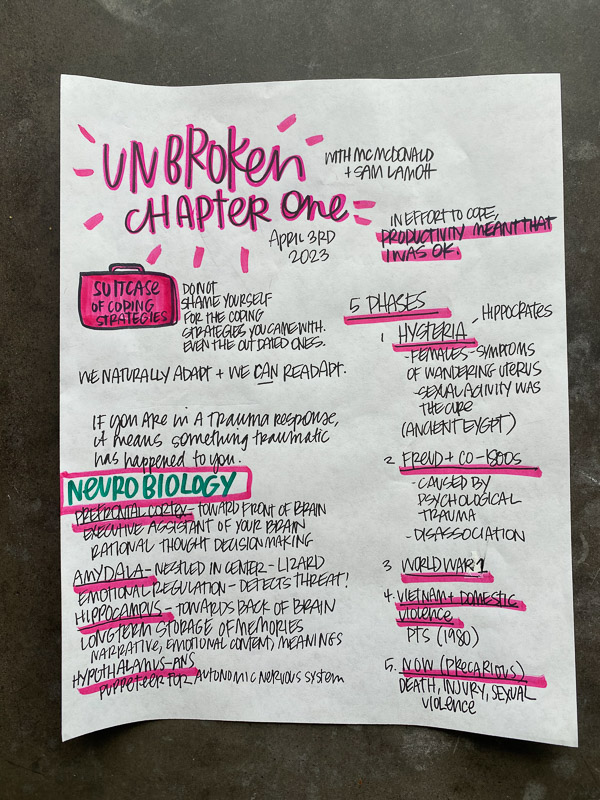 UNBROKEN
CHAPTER ONE
WITH MC MCDONALD
+ SAM LAMOTT
APRIL 3RD
2023
IN EFFORT TO COPE,
PRODUCTIVITY MEANT THAT
I WAS OK.
SUITCASE
OF CODING
STRATEGIES
DO NOT
SHAME YOURSELF
FOR THE CODING
STRATEGIES YOU CAME WITH.
EVEN THE OUTDATED ONES.
WE NATURALLY ADAPT + WE CAN READAPT.
IF YOU ARE IN A TRAUMA RESPONSE,
IT MEANS SOMETHING TRAUMATIC
HAS HAPPENED TO YOU.
NEUROBIOLOGY
PREFRONTAL CORTEX - TOWARD FRONT OF BRAIN
EXECUTIVE ASSISTANT OF YOUR BRAIN
RATIONAL THOUGHT DECISION MAKING
AMYDALA - NESTLED IN CENTER - LIZARD
EMOTIONAL REGULATION - DETECTS THREAT!
HIPPOCAMPUS - TOWARDS BACK OF BRAIN
LONG TERM STORAGE OF MEMORIES
NARRATIVE, EMOTIONAL CONTENT, MEANINGS
HYPOTHALAMUS - ANS
PUPPETEER FOR AUTONOMIC NERVOUS SYSTEM
5 PHASES
1 HYSTERIA - HIPPOCRATES
- FEMALES - SYMPTOMS
OF WANDERING UTERUS
- SEXUAL ACTIVITY WAS
THE CURE
(ANCIENT EYGPT)
2. FREUD + CO - 1800s
- CAUSED BY
PSYCHOLOGICAL
TRAUMA
- DISASSOCIATION
3 WORLD WAR 1
4. VIETNAM + DOMESTIC
VIOLENCE
PTS (1980)
5. NOW (PRECARIOUS)
DEATH, INJURY, SEXUAL
VIOLENCE